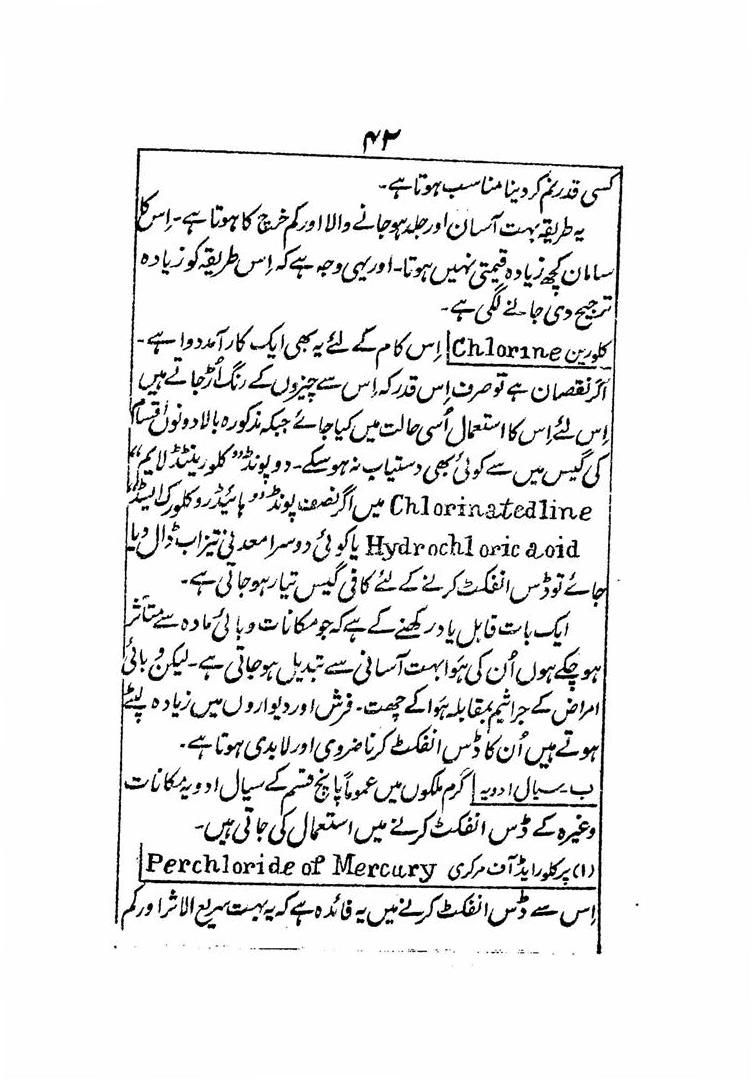 ۴۲
کسی قدر نم کر دینا مناسب ہوتا ہے۔
یہ طریقہ بہت آسان اور جلد ہو جانے والا اور کم خرچ کا ہوتا ہے۔ اِس کا
سامان کچھ زیادہ قیمتی نہیں ہوتا۔ اور یہی وجہ ہے کہ اِس طریقہ کو زیادہ
ترجیح دی جانے لگی ہے۔
کلورین Chlorine اِس کام کے لئے یہ بھی ایک کار آمد دوا ہے۔
اگر نقصان ہے تو صرف اِس قدر کہ اِس سے چیزوں کے رنگ اُڑ جاتے ہیں
اِس لئے اِس کا استعمال اُسی حالت میں کیا جائے جبکہ مذکورہ بالا دونوں اقسام
کی گیس میں سے کوئی بھی دستیاب نہ ہو سکے۔ دو پونڈ "کلورینٹڈ لائیم"
Chlorinatedline میں اگر نصف پونڈ "ہائیڈرو کلورک ایسڈ"
Hydrochloric aoid یا کوئی دوسرا معدنی تیزاب ڈال دیا
جائے تو ڈس انفکٹ کرنے کے لئے کافی گیس تیار ہو جاتی ہے۔
ایک بات قابل یاد رکھنے کے ہے کہ جو مکانات وبائی مادہ سے متاثر
ہو چکے ہوں اُن کی ہَوا بہت آسانی سے تبدیل ہو جاتی ہے۔ لیکن وبائی
امراض کے جراثیم بمقابلہ ہَوا کے چھت۔ فرش اور دیواروں میں زیادہ لپٹے
ہوتے ہیں اُن کا ڈس انفکٹ کرنا ضروی اور لابدی ہوتا ہے۔
ب۔ سیال ادویہ گرم ملکوں میں عموماً پانچ قسم کے سیال ادویہ مکانات
وغیرہ کے ڈس انفکٹ کرنے میں استعمال کی جاتی ہیں۔
(۱) پر کلورایڈ آف مرکری Perchloride of Mercury
اِس سے ڈس انفکٹ کرنے میں یہ فائدہ ہے کہ یہ بہت سریع الاثر اور کم